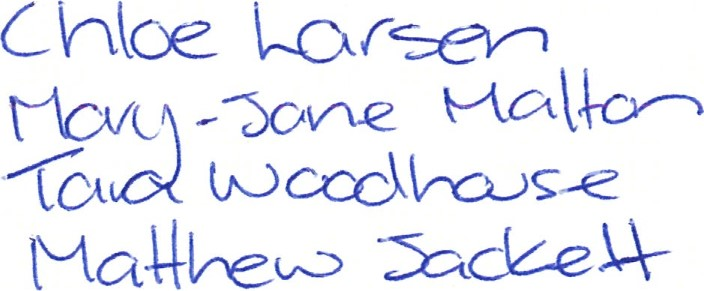 Chloe Larsen
Mary-Jane Malton
Tara Woodhouse
Matthew Jackett